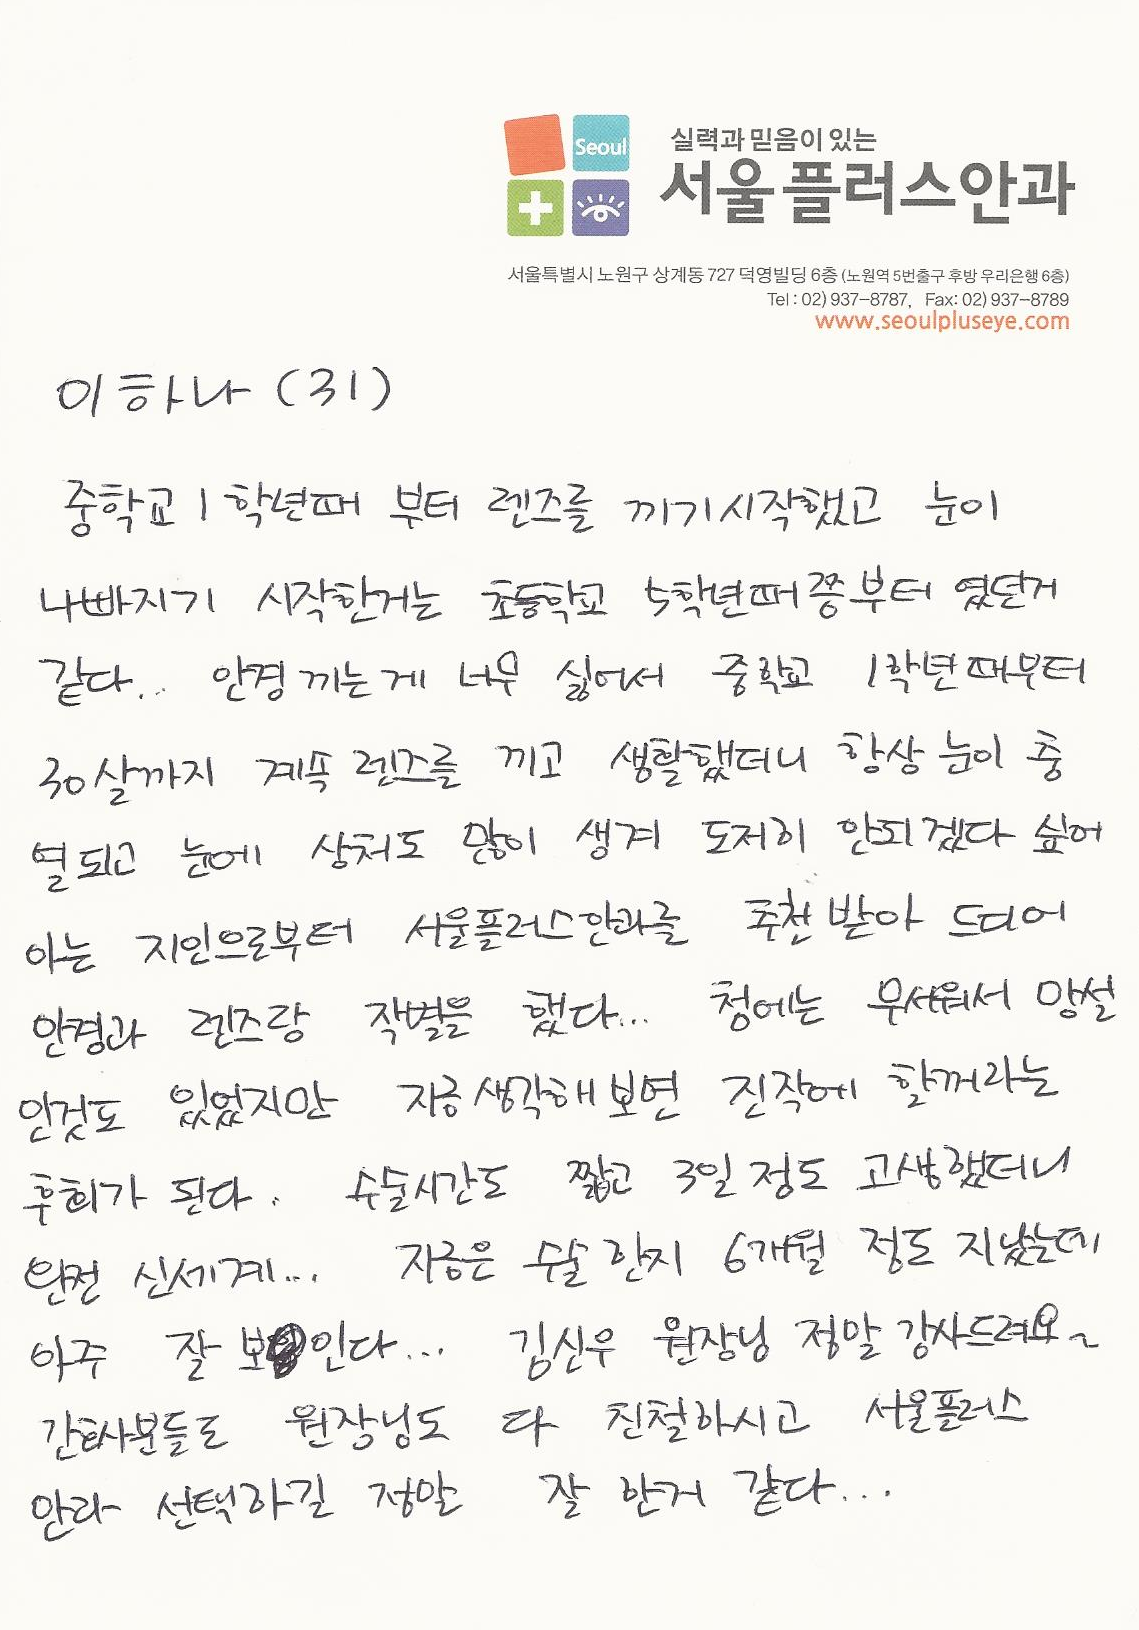 Seoul
실력과 믿음이 있는
서울플러스안과
서울특별시 노원구 상계동 727 덕영빌딩 6층 (노원역 5번출구 후방 우리은행 6층)
Tel : 02) 937-8787, Fax: 02) 937-8789
www.seoulpluseye.com
이하나 (31)
중학교 1학년때 부터 렌즈를 끼기시작했고 눈이
나빠지기 시작한거는 초등학교 5학년때쯤부터 였던거
같다.. 안경 끼는게 너무 싫어서 중학교 1학년때부터
30살까지 계속 렌즈를 끼고 생활했더니 항상 눈이 충
열되고 눈에 상처도 많이 생겨 도저히 안되겠다 싶어
아는 지인으로부터 서울플러스안과를 추천 받아 드디어
안경과 렌즈랑 작별을 했다... 첨에는 무서워서 망설
인것도 있었지만 지금생각해보면 진작에 할꺼라는
후회가 된다. 수술시간도 짧고 3일 정도 고생했더니
완전 신세계... 지금은 수술 한지 6개월 정도 지났는데
아주 잘 보인다... 김신우 원장님 정말 감사드려요~
간호사분들도 원장님도 다 친절하시고 서울플러스
안과 선택하길 정말 잘 한거 같다...